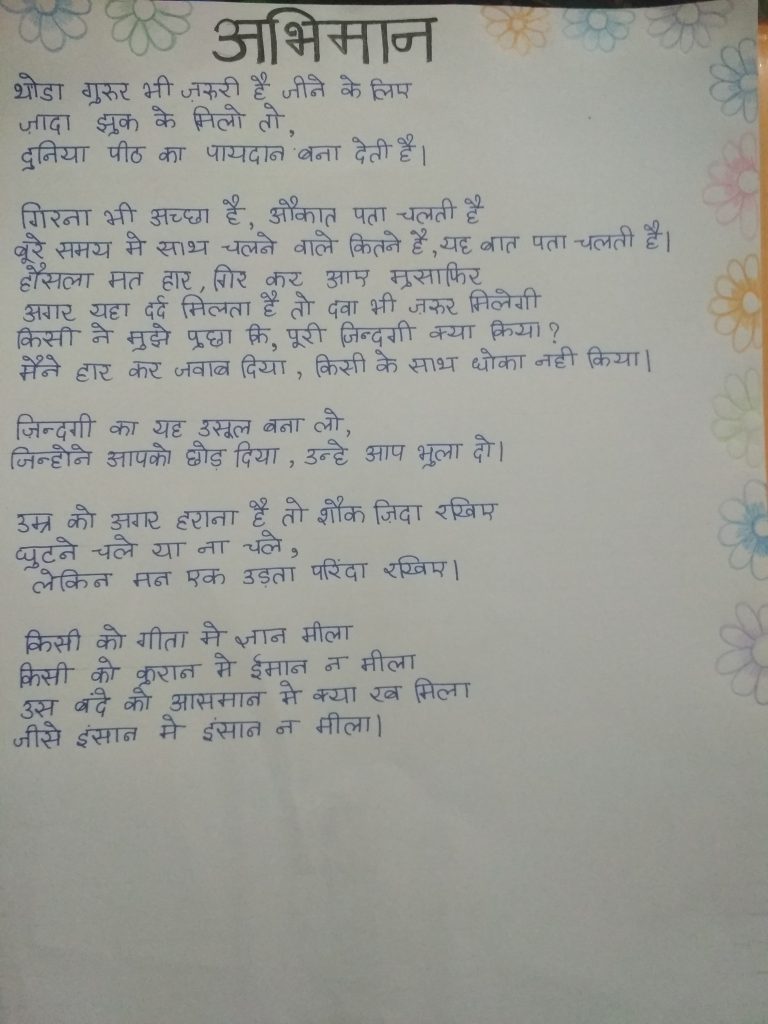 अभिमान
थोडा गुरुर भी ज़रुरी है जीने के लिए
ज़ादा झुक के मिलो तो,
दुनिया पीठ का पायदान बना देती है।
गिरना भी अच्छा है, औकात पता चलती है
बूरे समय मे साथ चलने वाले कितने है, यह बात पता चलती है।
हौसला मत हार, गिर कर आए मुसाफिर
अगर यहा दर्द मिलता है तो दवा भी जरुर मिलेगी
किसी ने मुझे पुछा कि, पूरी ज़िन्दगी क्या किया?
मैने हार कर जवाब दिया, किसी के साथ धोका नही किया।
ज़िन्दगी का यह उसूल बना लो,
जिन्होने आपको छोड़ दिया, उन्हे आप भुला दो।
उम्र को अगर हराना है तो शौक ज़िदा रखिए
घुटने चले या ना चले,
लेकिन मन एक उड़ता परिंदा रखिए।
किसी को गीता मे ज्ञान मीला
किसी को कुरान मे ईमान न मीला
उस बंदे को आसमान मे क्या रब मिला
जीसे इंसान मे इंसान न मीला।